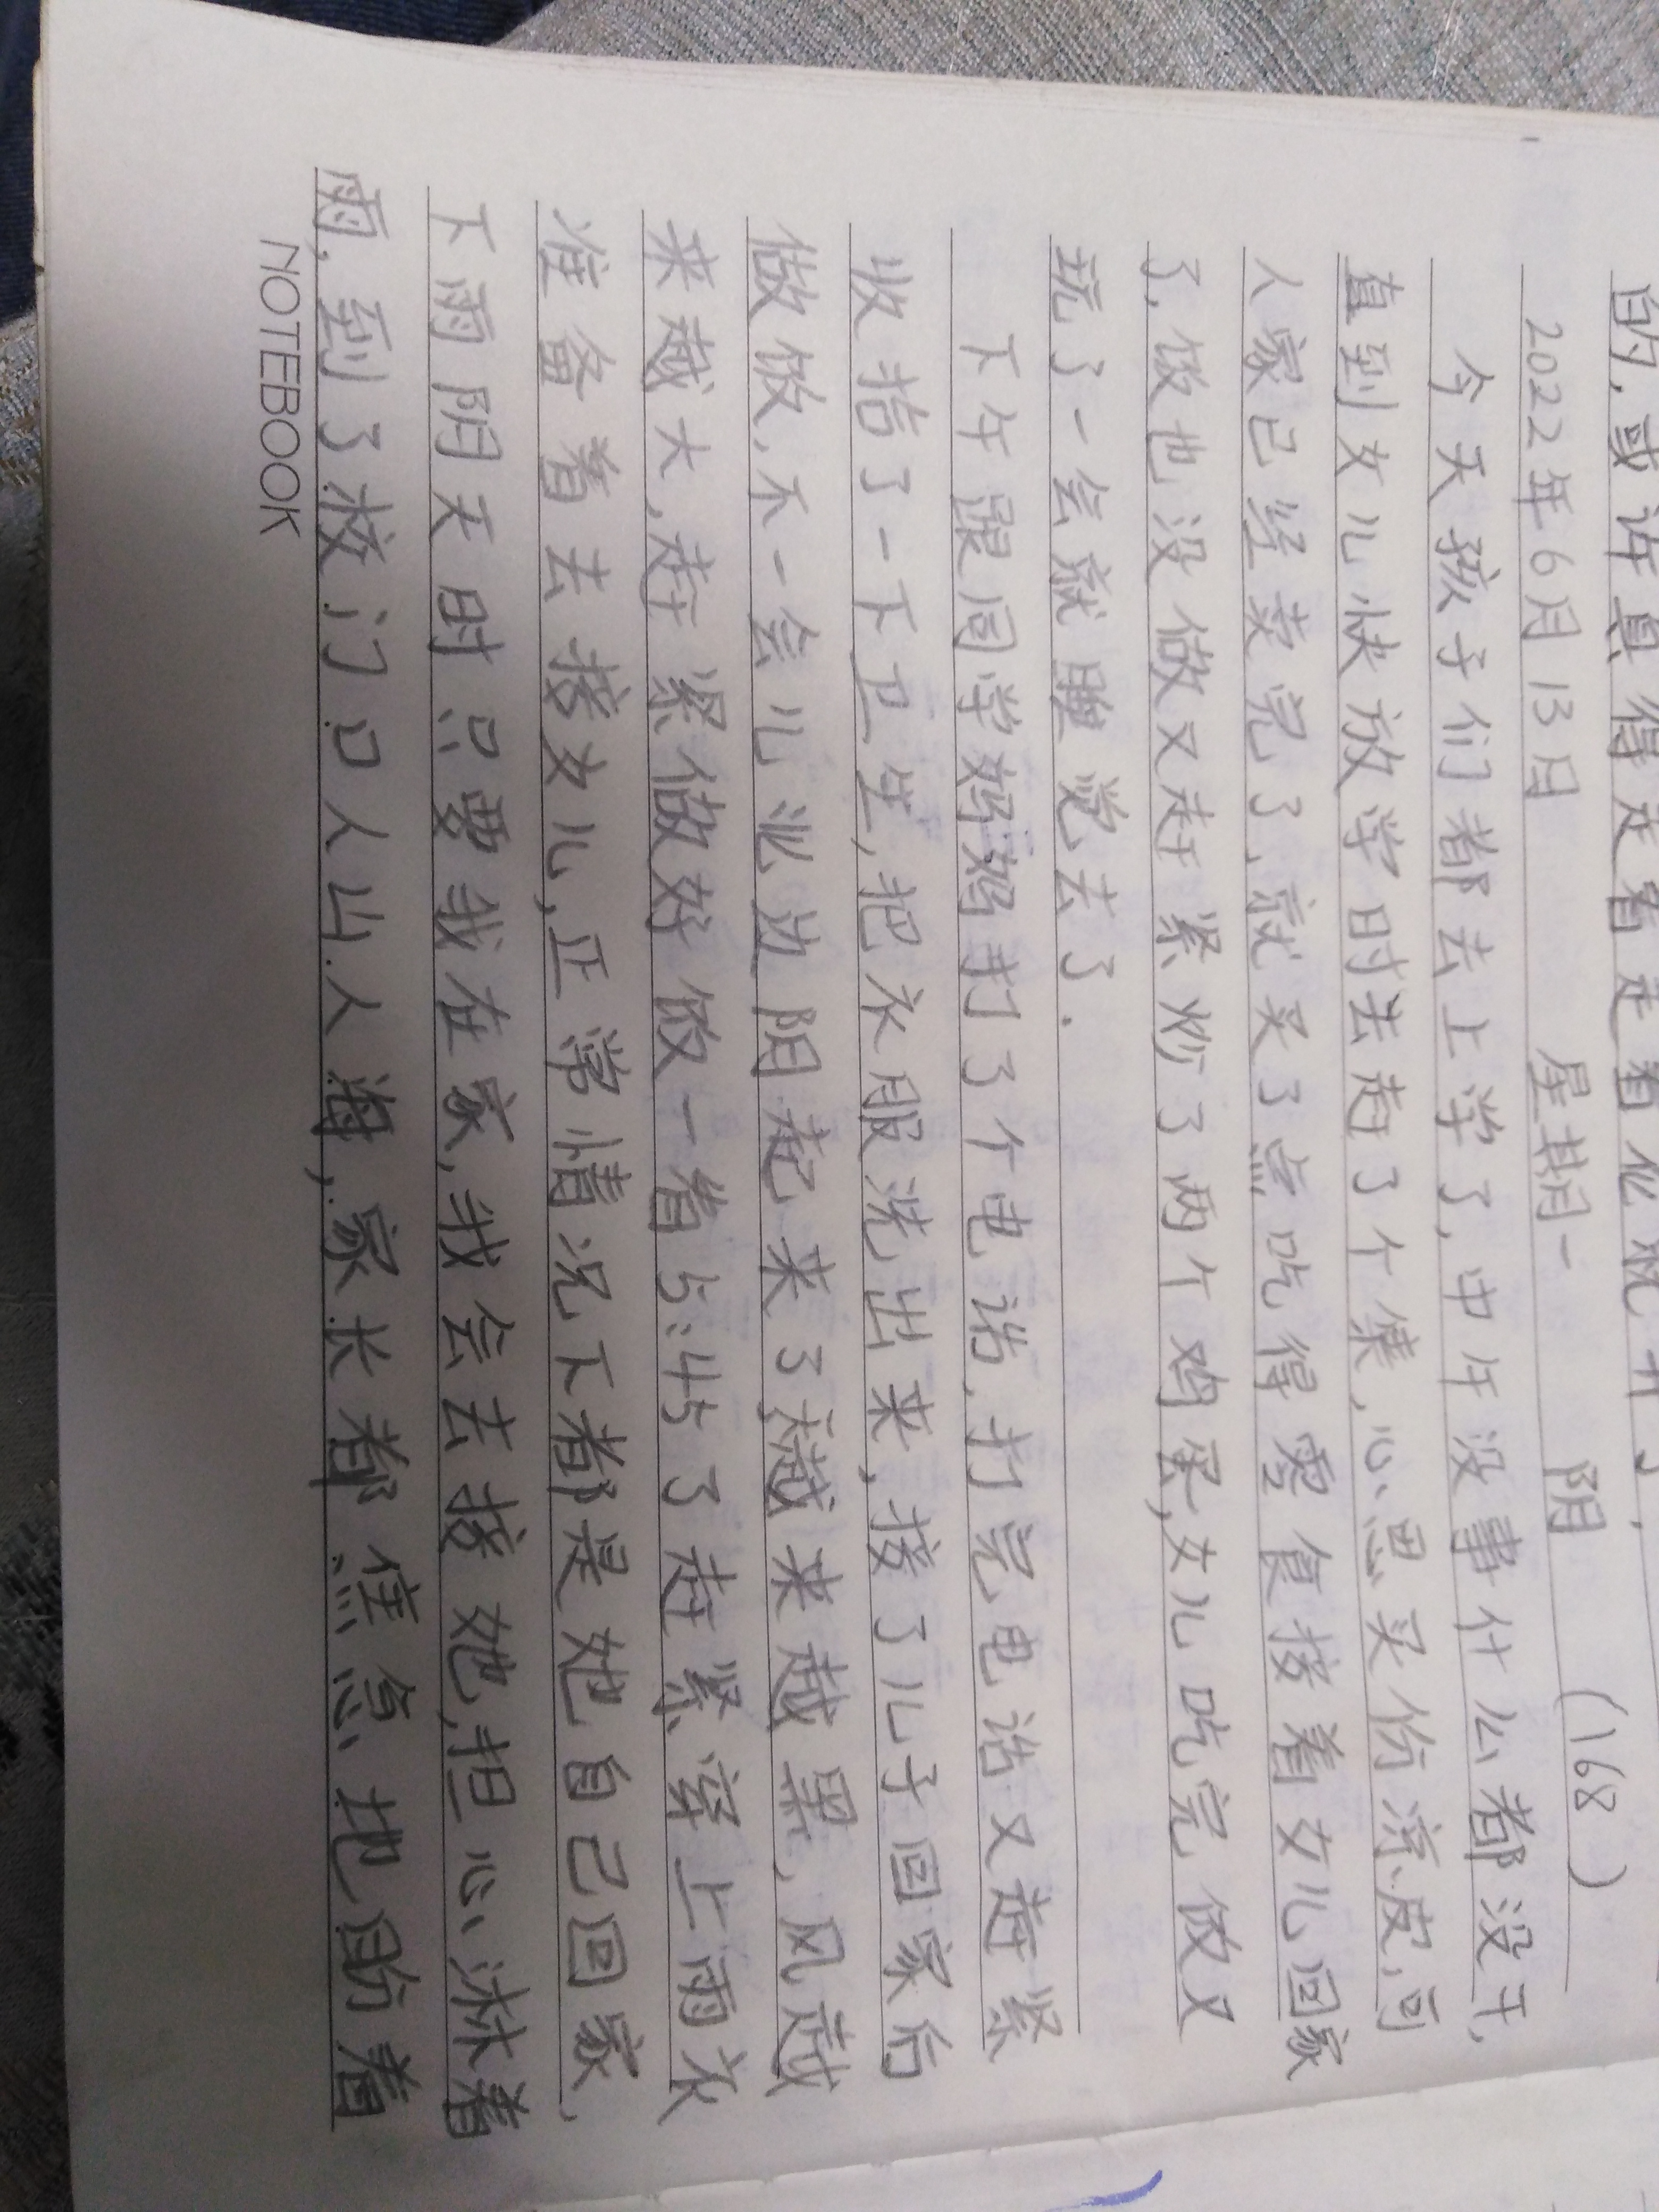 的,或许真得走着走着花就开了.
2022年6月13日 星期一 阴 (168)
今天孩子们都去上学了,中午没事什么都没干,
直到女儿快放学时去赶了个集,心思买份凉皮,可
人家已经卖完了,就买了点吃得零食接着女儿回家
了,饭也没做又赶紧炒了两个鸡蛋,女儿吃完饭又
玩了一会就睡觉去了.
下午跟同学妈妈打了个电话,打完电话又赶紧
收拾了一下卫生,把衣服洗出来,接了儿子回家后
做饭,不一会儿北边阴起来了越来越黑,风越
来越大,赶紧做好饭一看5:45了赶紧穿上雨衣
准备着去接女儿,正常情况下都是她自己回家,
下雨阴天时只要我在家,我会去接她,担心淋着
雨,到了校门口人山人海,家长都焦急地盼着
NOTEBOOK